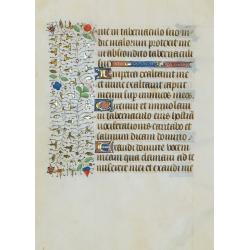 me in tabernaculo suo in
die malorum protexit me
in abscondito tabernaculi
In petra exaltavit me
et nunc exaltavit caput
meum sup inimicos meos
et immolavi
in tabernaculo eius hostiā
vociferationis cantabo et
psalmum dicam domino
Exaudi domine vocem
meam qua clamavi ad te
miserere mei et exaudi me